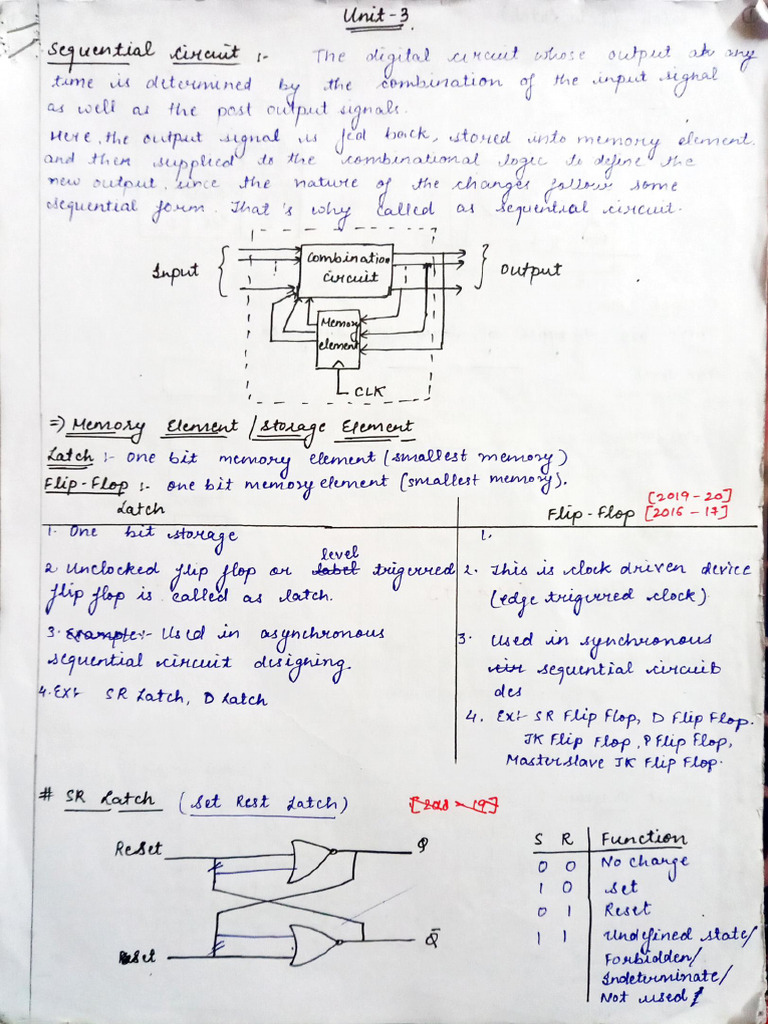 Unit-3
Sequential Circuit :- The digital circuit whose output at any
time is determined by the combination of the input signal
as well as the post output signals.
Here, the output signal is fed back, stored into memory element.
and then supplied to the combinational logic to define the
new output, since the nature of the changes follow some
sequential form. That's why called as sequential circuit.
Input
Combination
circuit
Output
Memory
element
CLK
=) Memory Element / Storage Element
Latch :- One bit memory element (smallest memory)
Flip-Flop :- one bit memory element (smallest memory).
Latch
Flip-Flop [2019-20]
[2016-17]
1. One bit storage
2 Unclocked flip flop or label level trigerred
flip flop is called as latch.
3. Example:- Used in asynchronous
sequential circuit designing.
4. Ex:- SR Latch, D Latch
1.
2. This is clock driven device
(edge trigerred clock)
3. Used in synchronous
cir sequential circuit
des
4. Ex:- SR Flip Flop, D Flip Flop.
JK Flip Flop, P Flip Flop,
Master slave JK Flip Flop.
# SR Latch (Set Rest Latch) [2018-19]
Reset
Q
Set
Q̄
S R Function
0 0 No change
1 0 Set
0 1 Reset
1 1 Undefined state/
Forbidden/
Indeterminate/
Not used